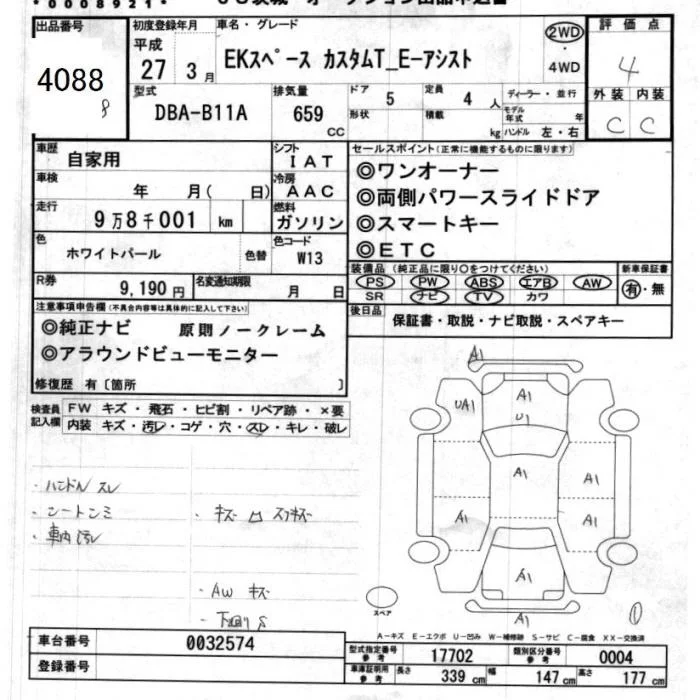 *0008921*
出品番号
4088
8
初度登録年月
平成
27 3月
車名・グレード
EKスペース カスタムT_E-アシスト
2WD
・
4WD
評価点
4
外装 内装
C C
型式
DBA-B11A
排気量
659
CC
ドア
5
定員
4人
形状
積載
kg
ディーラー・並行
モデル年式 年
ハンドル 左・右
車歴
自家用
シフト
IAT
車検
年 月( 日)
冷房
AAC
走行
9万8千001 km
燃料
ガソリン
色
ホワイトパール
色替
色コード
W13
R券
9,190円
名変通知期限
月 日
セールスポイント(正常に機能するものに限ります)
◎ワンオーナー
◎両側パワースライドドア
◎スマートキー
◎ETC
装備品(純正品に限り○をつけてください)
PS PW ABS エアB AW
SR ナビ TV カワ
新車保証書
有・無
後日品
保証書・取説・ナビ取説・スペアキー
注意事項申告欄(不具合内容等は具体的に記入して下さい)
◎純正ナビ 原則ノークレーム
◎アラウンドビューモニター
修復歴 有〔箇所 〕
検査員
記入欄
FW キズ・飛石・ヒビ割・リペア跡・×要
内装 キズ・汚レ・コゲ・穴・スレ・キレ・破レ
・ハンドル スレ
・シートシミ
・車内汚レ
・AW キズ
A1
UA1
A1
U1
A1
A1
A1
A1
A1
A1
スペア
A-キズ E-エクボ U-凹み W-補修跡 S-サビ C-腐食 XX-交換済
車台番号
0032574
登録番号
型式指定番号
参考
17702
類別区分番号
参考
0004
車庫証明用
参考
長さ
339 cm
幅
147 cm
高さ
177 cm